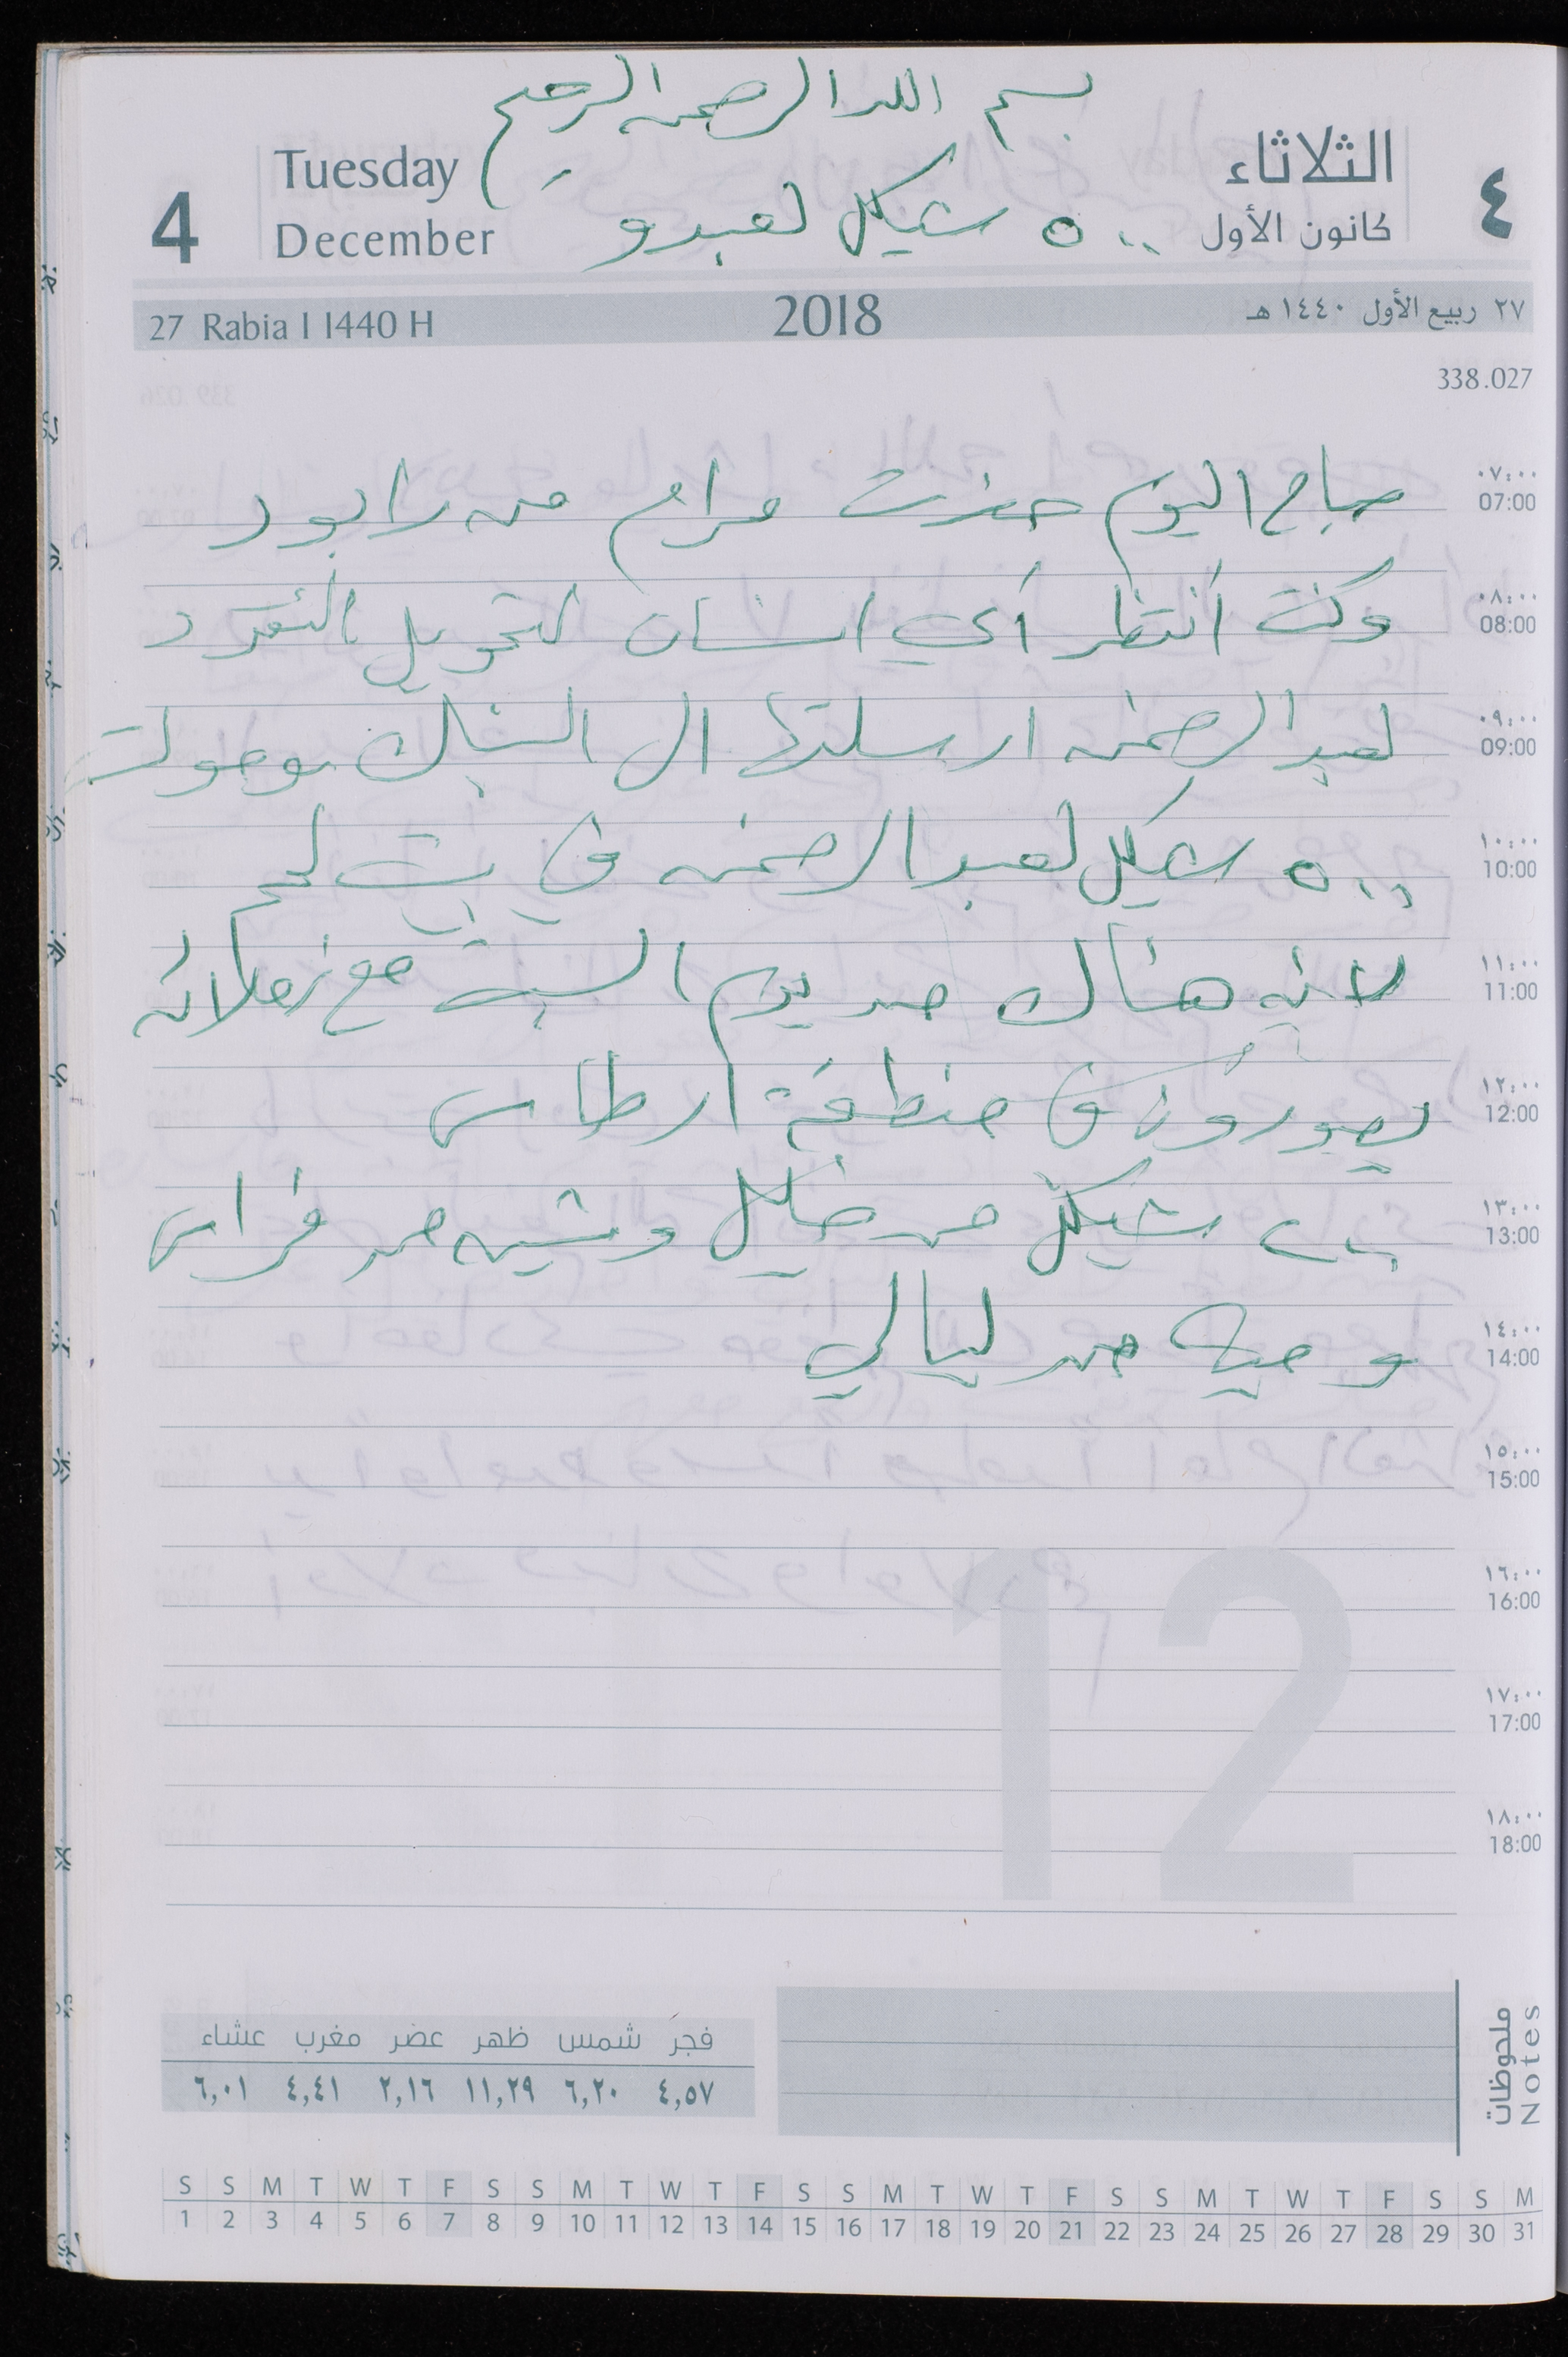 بسم الله الرحمن الرحيم
4 Tuesday December
الثلاثاء ٤
كانون الأول
٥٠٠ شيكل لعبدو
27 Rabia I 1440 H 2018 ٢٧ ربيع الأول ١٤٤٠ هـ
338.027
٠٧:٠٠
07:00
صباح اليوم حضرت مرام من رابود
٠٨:٠٠
08:00
وكنت أنتظر أي انسان لتحويل النقود
٠٩:٠٠
09:00
لعبد الرحمن ارسلتها الى البنك وحولت
١٠:٠٠
10:00
٥٠٠ شيكل لعبد الرحمن في بيت لحم
١١:٠٠
11:00
لانه هناك من يوم السبت مع زملائه
١٢:٠٠
12:00
يصورون في منطقة ارطاس
١٣:٠٠
13:00
شيكل من خليل وميتين من فراس
١٤:٠٠
14:00
و ميه من ليالي
١٥:٠٠
15:00
١٦:٠٠
16:00
١٧:٠٠
17:00
١٨:٠٠
18:00
12
ملحوظات
Notes
فجر شمس ظهر عصر مغرب عشاء
٤,٥٧ ٦,٢٠ ١١,٢٩ ٢,١٦ ٤,٤١ ٦,٠١
S S M T W T F S S M T W T F S S M T W T F S S M T W T F S S M
1 2 3 4 5 6 7 8 9 10 11 12 13 14 15 16 17 18 19 20 21 22 23 24 25 26 27 28 29 30 31